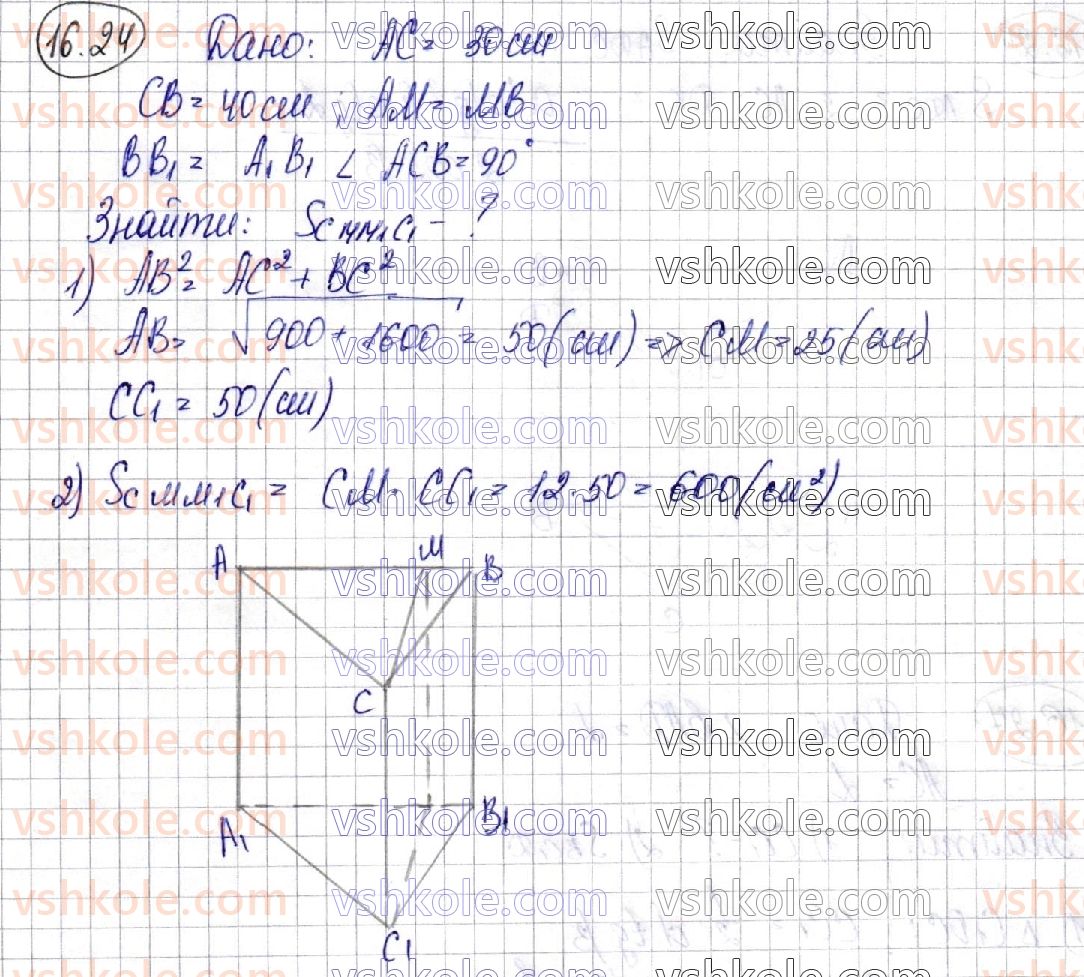 16.24 Дано: AC = 30 см
CB = 40 см ; AM = MB
BB₁ = A₁B₁ ∠ ACB = 90°
Знайти: Scмм₁c₁ - ?
1) AB² = AC² + BC²
AB = √900 + 1600 = 50 (см) => CM = 25 (см)
CC₁ = 50 (см)
2) Scмм₁c₁ = CM · CC₁ = 12 · 50 = 600 (см²)
A M B
C
A₁ B₁
C₁
vshkole.com